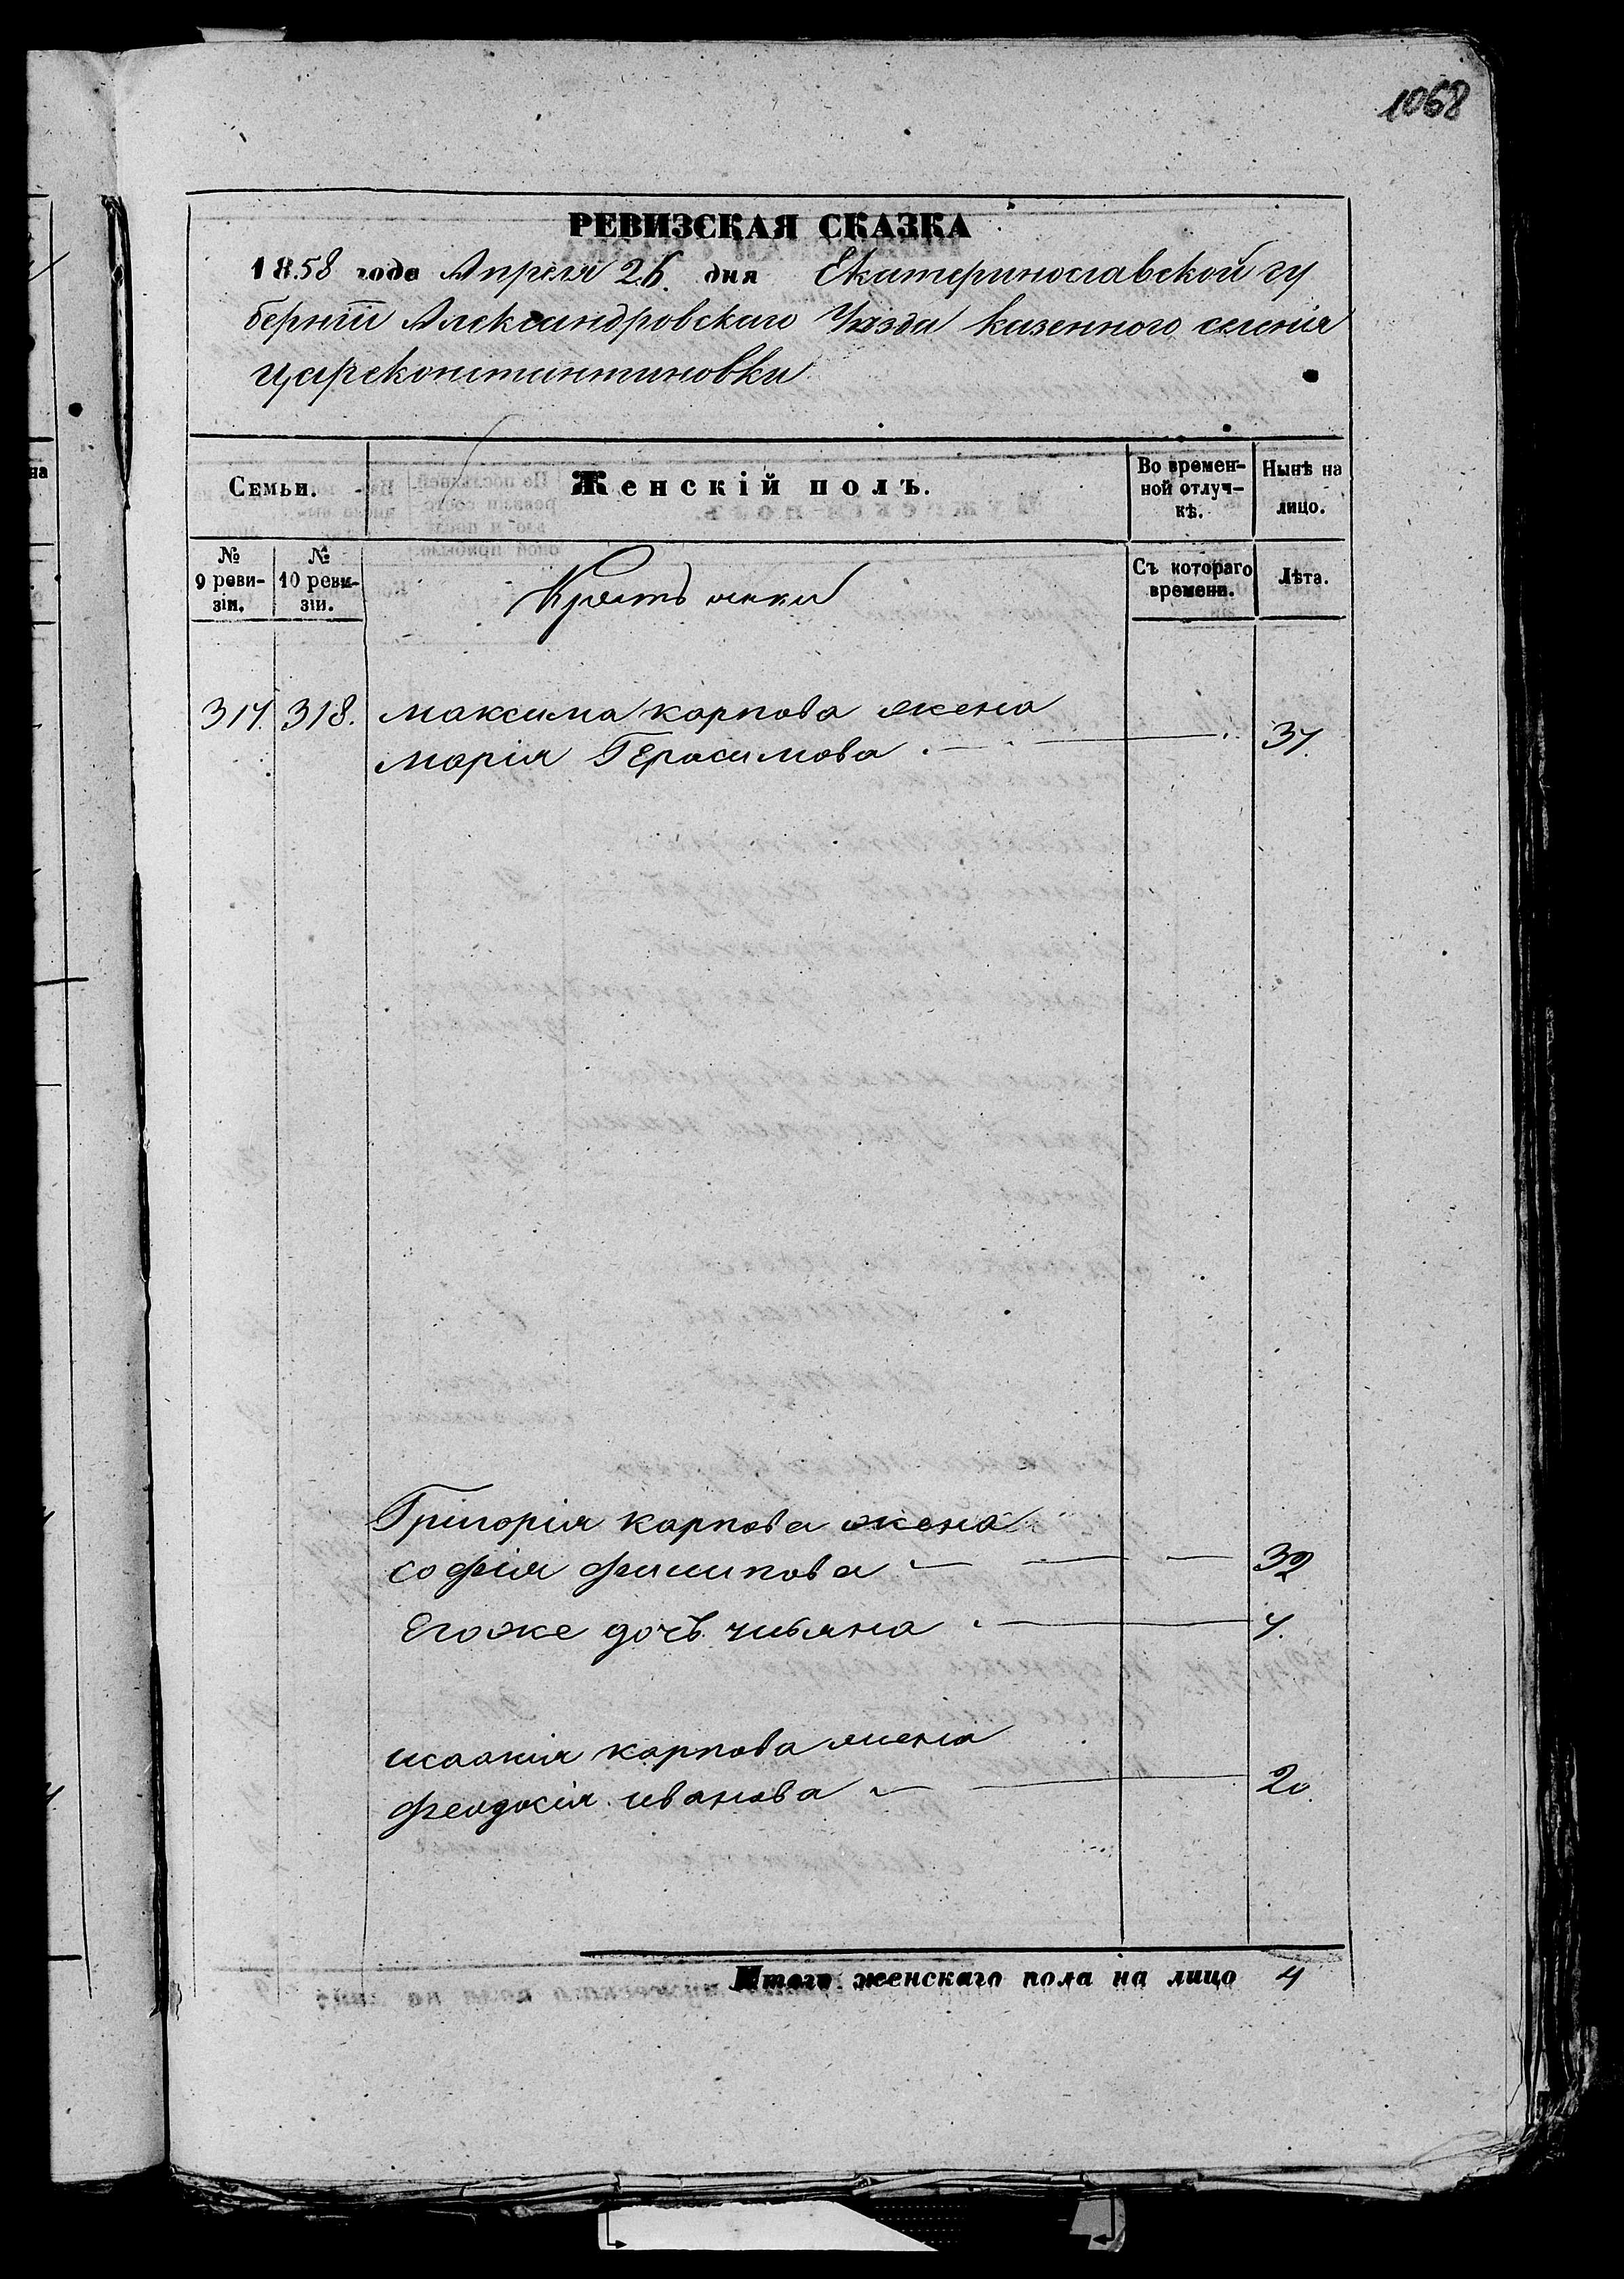 1068
РЕВИЗСКАЯ СКАЗКА
1858 года Апреля 26. дня Екатеринославской гу
берніи Александровскаго Уѣзда казенного селенія
Царсконстантиновки
Семьи.
Женскій полъ.
Во времен-
ной отлуч-
кѣ.
Нынѣ на
лицо.
№
9 реви-
зіи.
№
10 реви-
зіи.
Крестьянки
Съ котораго
времени.
Лѣта.
317. 318. Максима карпова жена
Марія Герасимова 37.
Григорія карпова жена
софія филипова 32
Егоже дочь 7.
исаакія карпова жена
феодосія иванова 20.
Итого женскаго пола на лицо 4